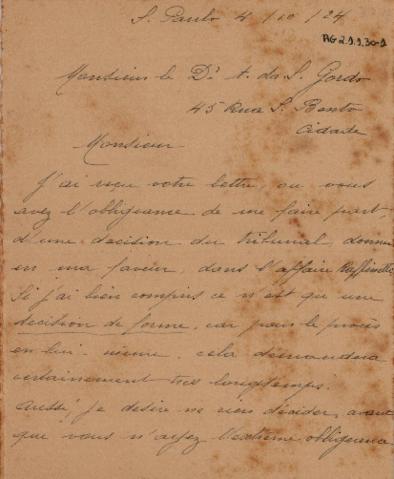 S. Paulo 4/10/24
AG2.1.1.30-1
Monsieur le Dr A. da S. Gordo
45 Rua S. Bento
Cidade
Monsieur
J'ai reçu votre lettre, ou vous
avez l'obligeance de me faire part,
d'une decision du tribunal, donnée
en ma faveur, dans l'affaire
Si j'ai bien compris ce n'est que une
decision de forme, car pour le procès
en lui-même, cela demandera
certainement tres longtemps.
Aussi je desire ne rien décider, avant
que vous n'ayez l'extrême obligeance